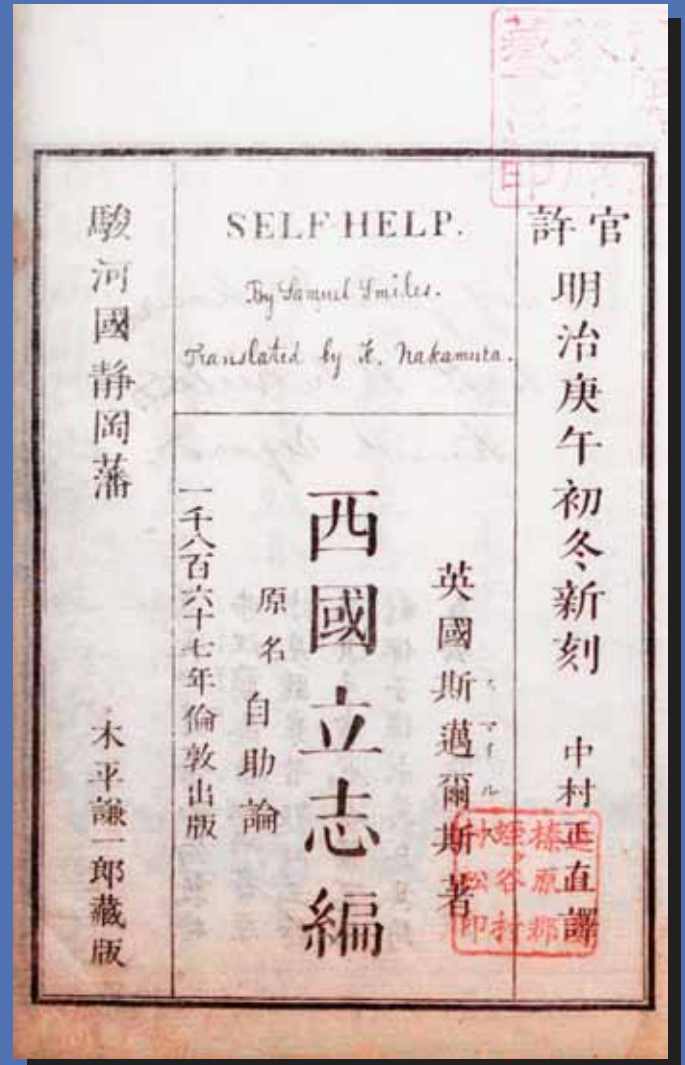 官許
明治庚午初冬新刻 中村正直譯
SELF-HELP.
By Samuel Smiles.
Translated by K. Nakamura.
英國斯邁爾斯著
スマイルス
西國立志編
原名 自助論
一千八百六十七年倫敦出版
駿河國静岡藩 木平謙一郎藏版
榛原郡
蛭ヶ谷村
村松印